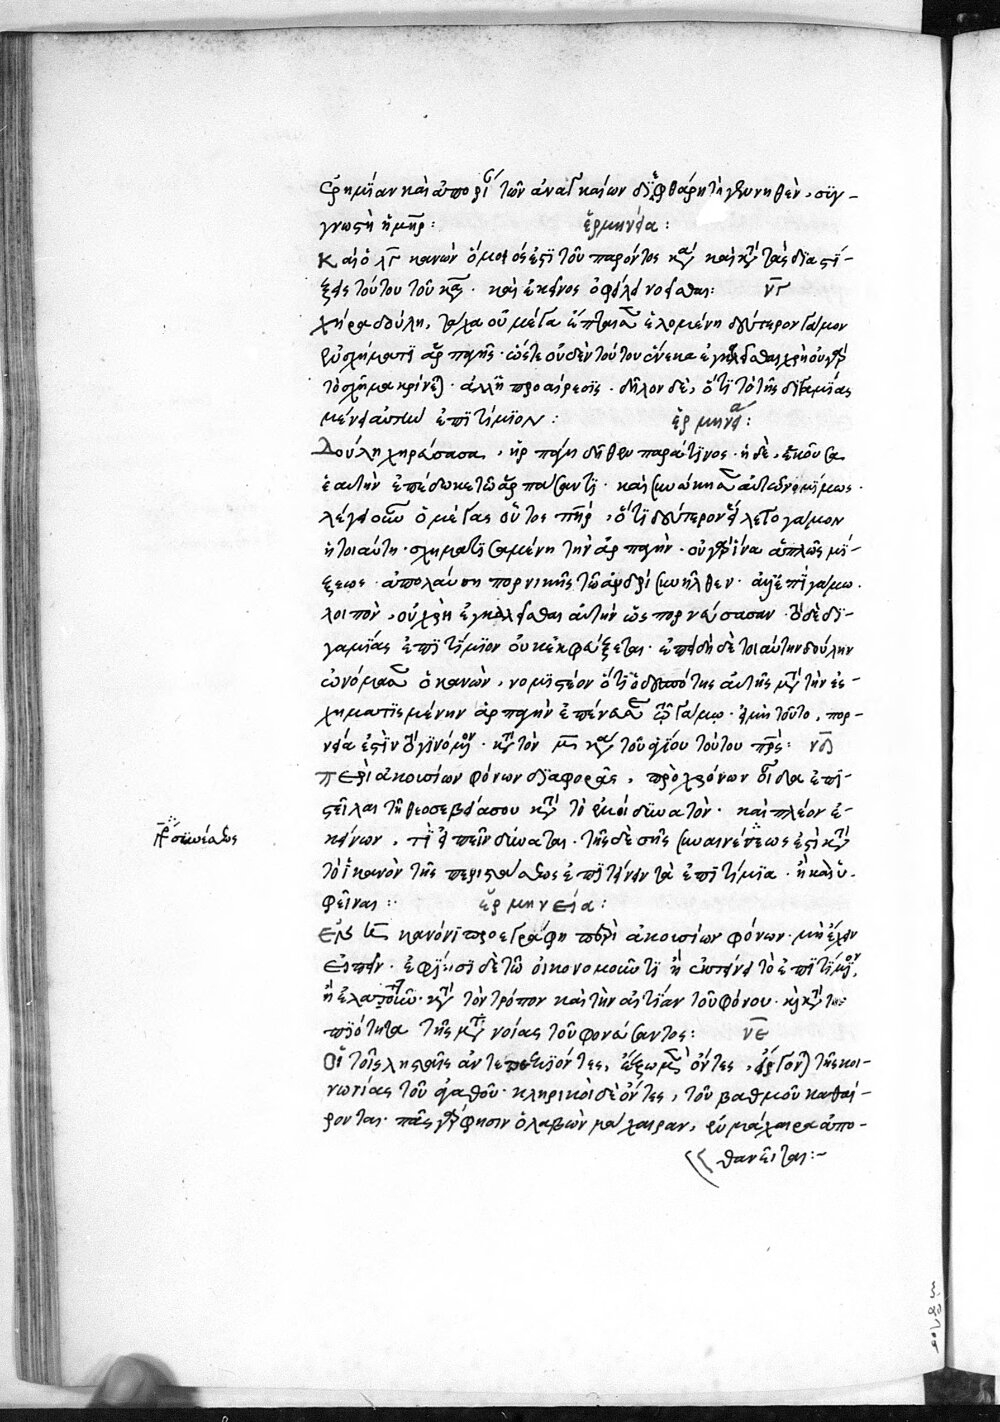 ἐρημίαν καὶ ἀπορί τῶν ἀναγκαίων διεφθάρη τὸ γεννηθὲν, συγ-
γνωστὴ ἡ μηρ: ἑρμηνεία:
Καὶ ὁ λγ κανὼν ὅμοιός ἐστι τοῦ παρόντος κατὰ
τούτου τοῦ καν. κἀκεῖνος ὀφείλει νοεῖσθαι: νγ
χήρα δούλη, τάχα οὐ μέγα ἔπταισεν ἑλομένη δεύτερον γάμον
ἐν σχήματι ἁρπαγῆς. ὥστε οὐδὲν τούτου ἕνεκα ἐγκαλεῖσθαι χρή· οὐ γὰρ
τὸ σχῆμα κρίνεται. ἀλλ' ἡ προαίρεσις. δῆλον δὲ, ὅτι τὸ τῆς διγαμίας
μένει αὐτῇ ἐπιτίμιον: ἑρμηνεία:
Δούλη χηρεύσασα, ἡρπάγη δῆθεν παρά τινος. ἡ δὲ, ἑκοῦσα
ἑαυτὴν ἐπέδωκε τῶ ἁρπάσαντι. καὶ συνώκησεν αὐτῶ ἐννομίμως.
λέγει οὖν ὁ μέγας οὗτος πηρ, ὅτι δεύτερον εἵλετο γάμον
ἡ τοιαύτη. σχηματισαμένη τὴν ἁρπαγήν. οὐ γὰρ ἵνα ἁπλῶς μί-
ξεως ἀπολαύση πορνικῆς τῶ ἀνδρὶ συνῆλθεν. ἀλλ' ἐπὶ γάμω.
λοιπὸν, οὐ χρὴ ἐγκαλεῖσθαι αὐτὴν ὡς πορνεύσασαν. τὸ δὲ δι-
γαμίας ἐπιτίμιον οὐκ ἐκφεύξεται. ἐπειδὴ δὲ τοιαύτην δούλην
ὠνόμασεν ὁ κανὼν, νομιστέον ὅτι ὁ δεσπότης αὐτῆς μετὰ τὴν ἐσ-
χηματισμένην ἁρπαγὴν ἐπένευσε τῶ γάμω. εἰ μὴ τοῦτο, πορ-
νεία ἐστὶν τὸ γινόμενον. κατὰ τὸν μ κα τοῦ ἁγίου τούτου πρς: νδ
Περὶ ἀκουσίων φόνων διαφορᾶς, πρὸ χρόνων οἶδα ἐπι-
στεῖλας τῆ θεοσεβεία σου κατὰ τὸ ἐμοὶ δυνατόν. καὶ πλέον ἐ-
κείνων, τι εἰπεῖν δύναμαι. τῆς δὲ σῆς συναινέσεως ἐστὶ κατὰ
τὸ ἱκανὸν τῆς περιστάσεως ἐπιτείνειν τὰ ἐπιτίμια. ἢ καὶ ὑ-
φεῖναι: ἑρμηνεία:
Ἐν κανόνι προεγράφη περὶ ἀκουσίων φόνων. μὴ ἔχειν
εἰπεῖν. ἐφίησι δὲ τῶ οἰκονομοῦντι ἢ ἐπιτείνειν τὸ ἐπιτίμιον,
ἢ ἐλαττοῦν. κατὰ τὸν τρόπον καὶ τὴν αἰτίαν τοῦ φόνου. καὶ κατὰ τὴν
ποιότητα τῆς μετανοίας τοῦ φονεύσαντος: νε
Οἱ τοῖς λησταῖς ἀντεπεξιόντες, ἔξω μὲν ὄντες, εἴργονται τῆς κοι-
νωνίας τοῦ ἀγαθοῦ. κληρικοὶ δὲ ὄντες, τοῦ βαθμοῦ καθαι-
ροῦνται. πᾶς γάρ φησιν ὁ λαβὼν μάχαιραν, ἐν μαχαίρα ἀπο-
θανεῖται:-